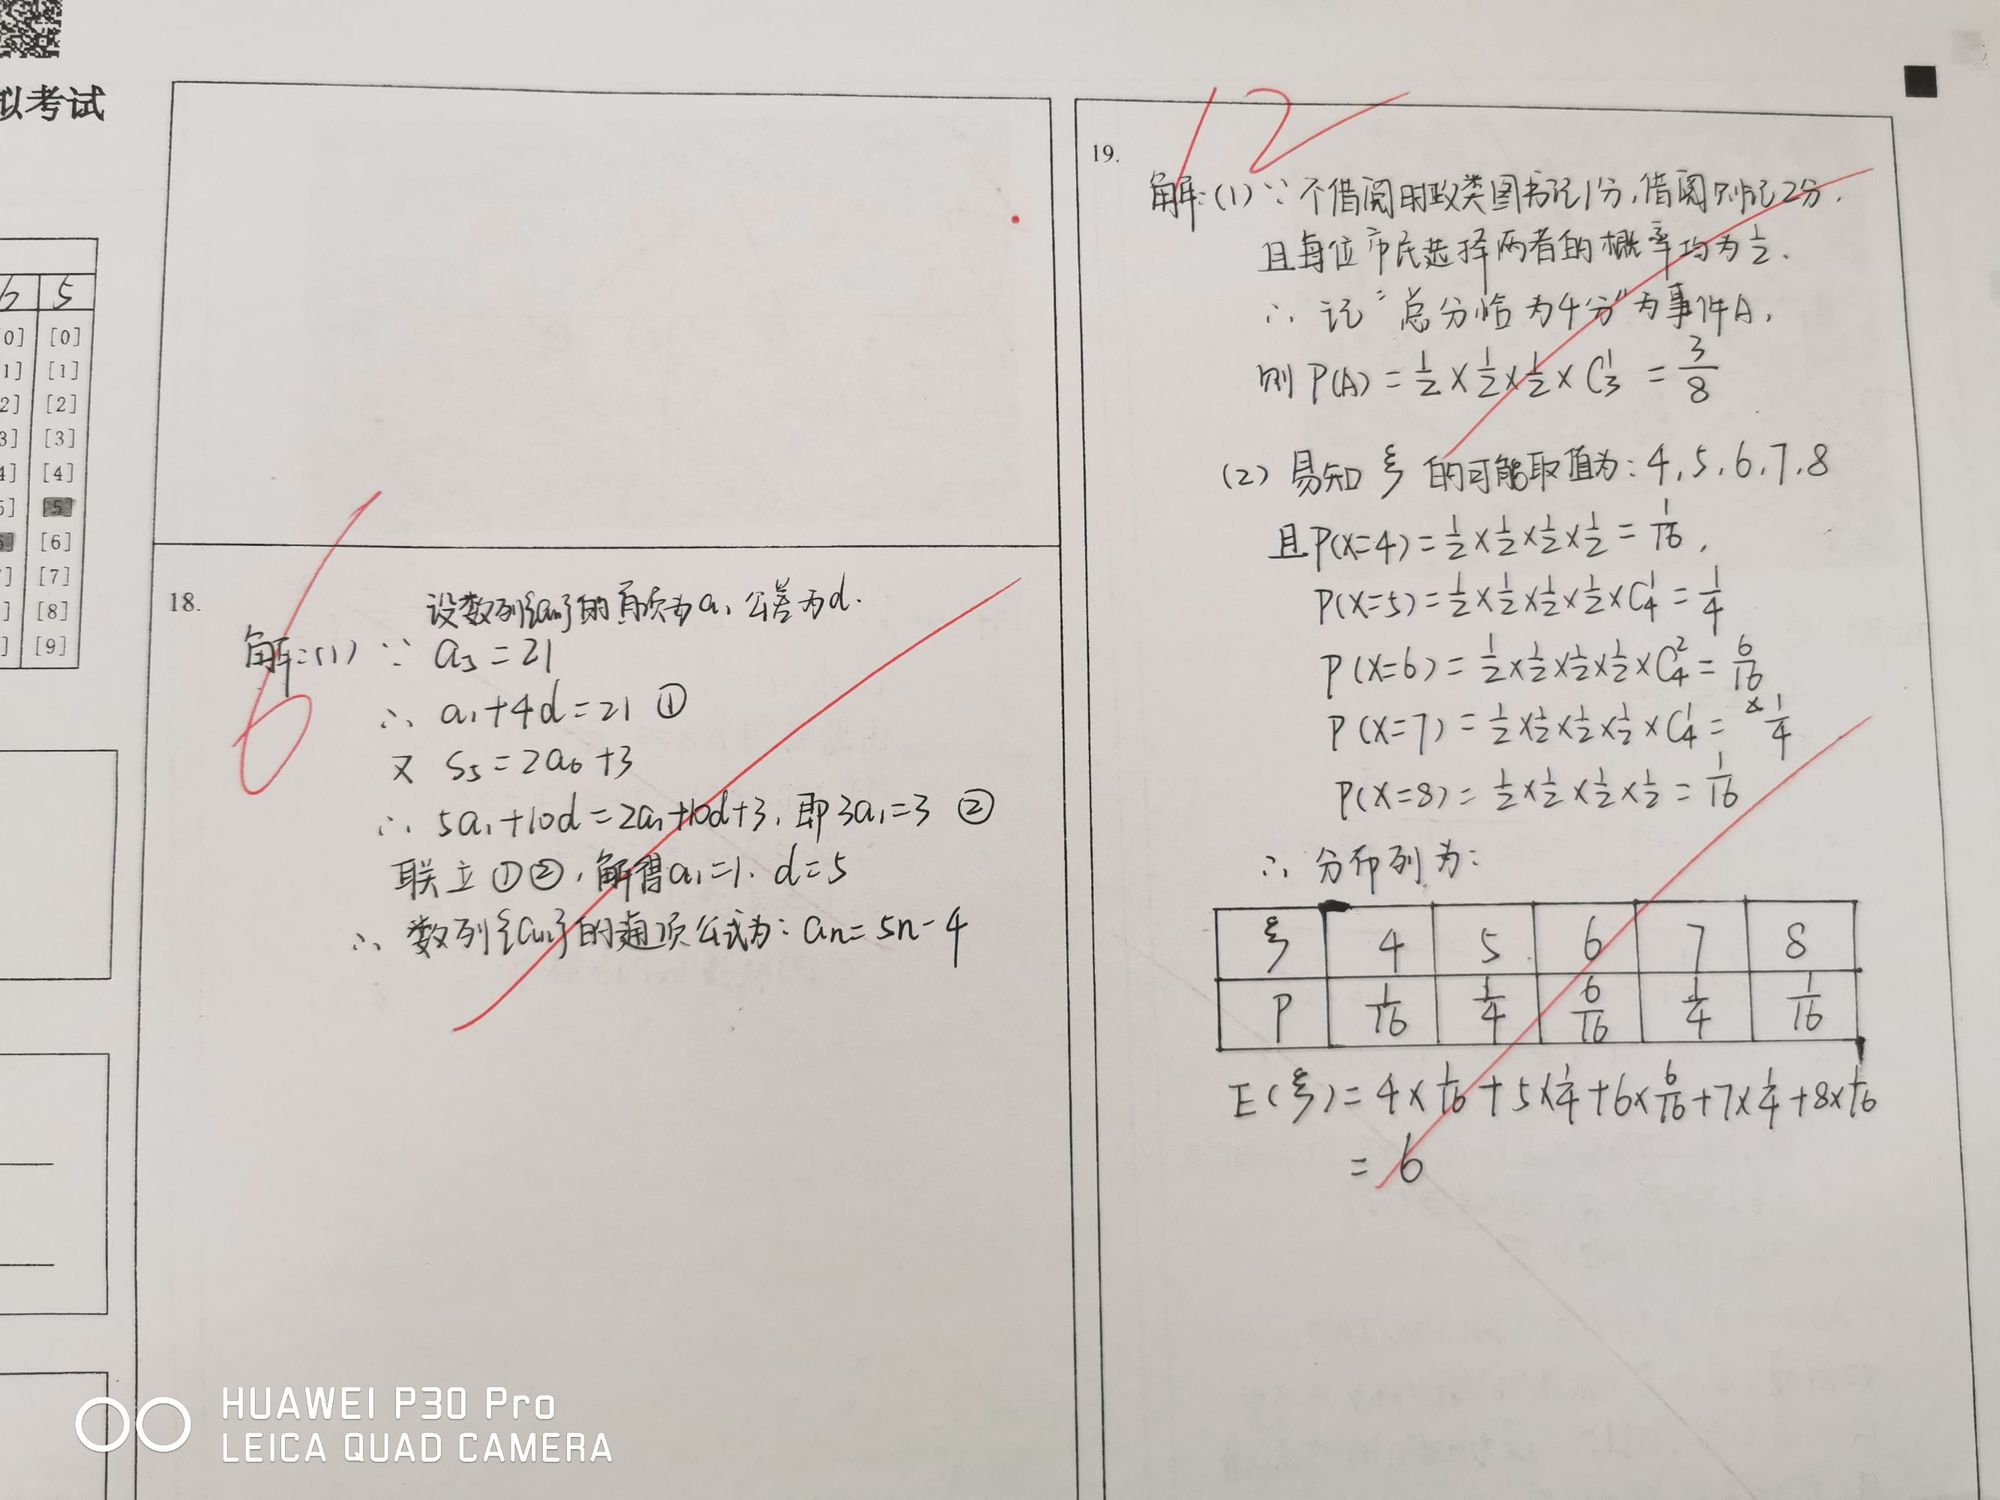 拟考试
6 5
[0] [0]
[1]
[2]
[3]
[4]
[5]
[6]
[7]
[8]
[9]
6
18.
设数列{an}的首项为a1 公差为d.
解:(1) ∵ a5=21
∴ a1+4d=21 ①
又 S5=2a6+3
∴ 5a1+10d=2a1+10d+3, 即3a1=3 ②
联立①②, 解得a1=1. d=5
∴ 数列{an}的通项公式为: an=5n-4
12
19.
解:(1) ∵ 不借阅时政类图书记1分, 借阅则记2分,
且每位市民选择两者的概率均为1/2.
∴ 记“总分恰为4分”为事件A,
则 P(A) = 1/2 × 1/2 × 1/2 × C₃¹ = 3/8
(2) 易知 ξ 的可能取值为: 4, 5, 6, 7, 8
且P(X=4) = 1/2 × 1/2 × 1/2 × 1/2 = 1/16,
P(X=5) = 1/2 × 1/2 × 1/2 × 1/2 × C₄¹ = 1/4
P(X=6) = 1/2 × 1/2 × 1/2 × 1/2 × C₄² = 6/16
P(X=7) = 1/2 × 1/2 × 1/2 × 1/2 × C₄¹ = 1/4
P(X=8) = 1/2 × 1/2 × 1/2 × 1/2 = 1/16
∴ 分布列为:
ξ 4 5 6 7 8
P 1/16 1/4 6/16 1/4 1/16
E(ξ) = 4×1/16 + 5×1/4 + 6×6/16 + 7×1/4 + 8×1/16
= 6
HUAWEI P30 Pro
LEICA QUAD CAMERA